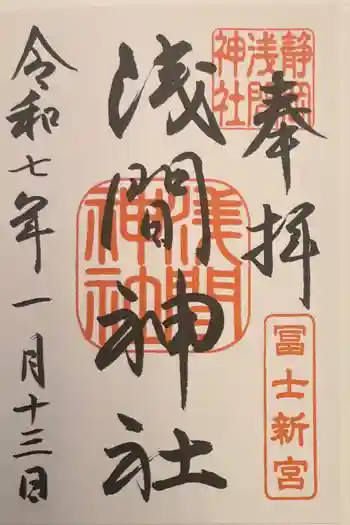 奉拝
静岡浅間神社
冨士新宮
浅間神社
浅間神社
令和七年一月十三日